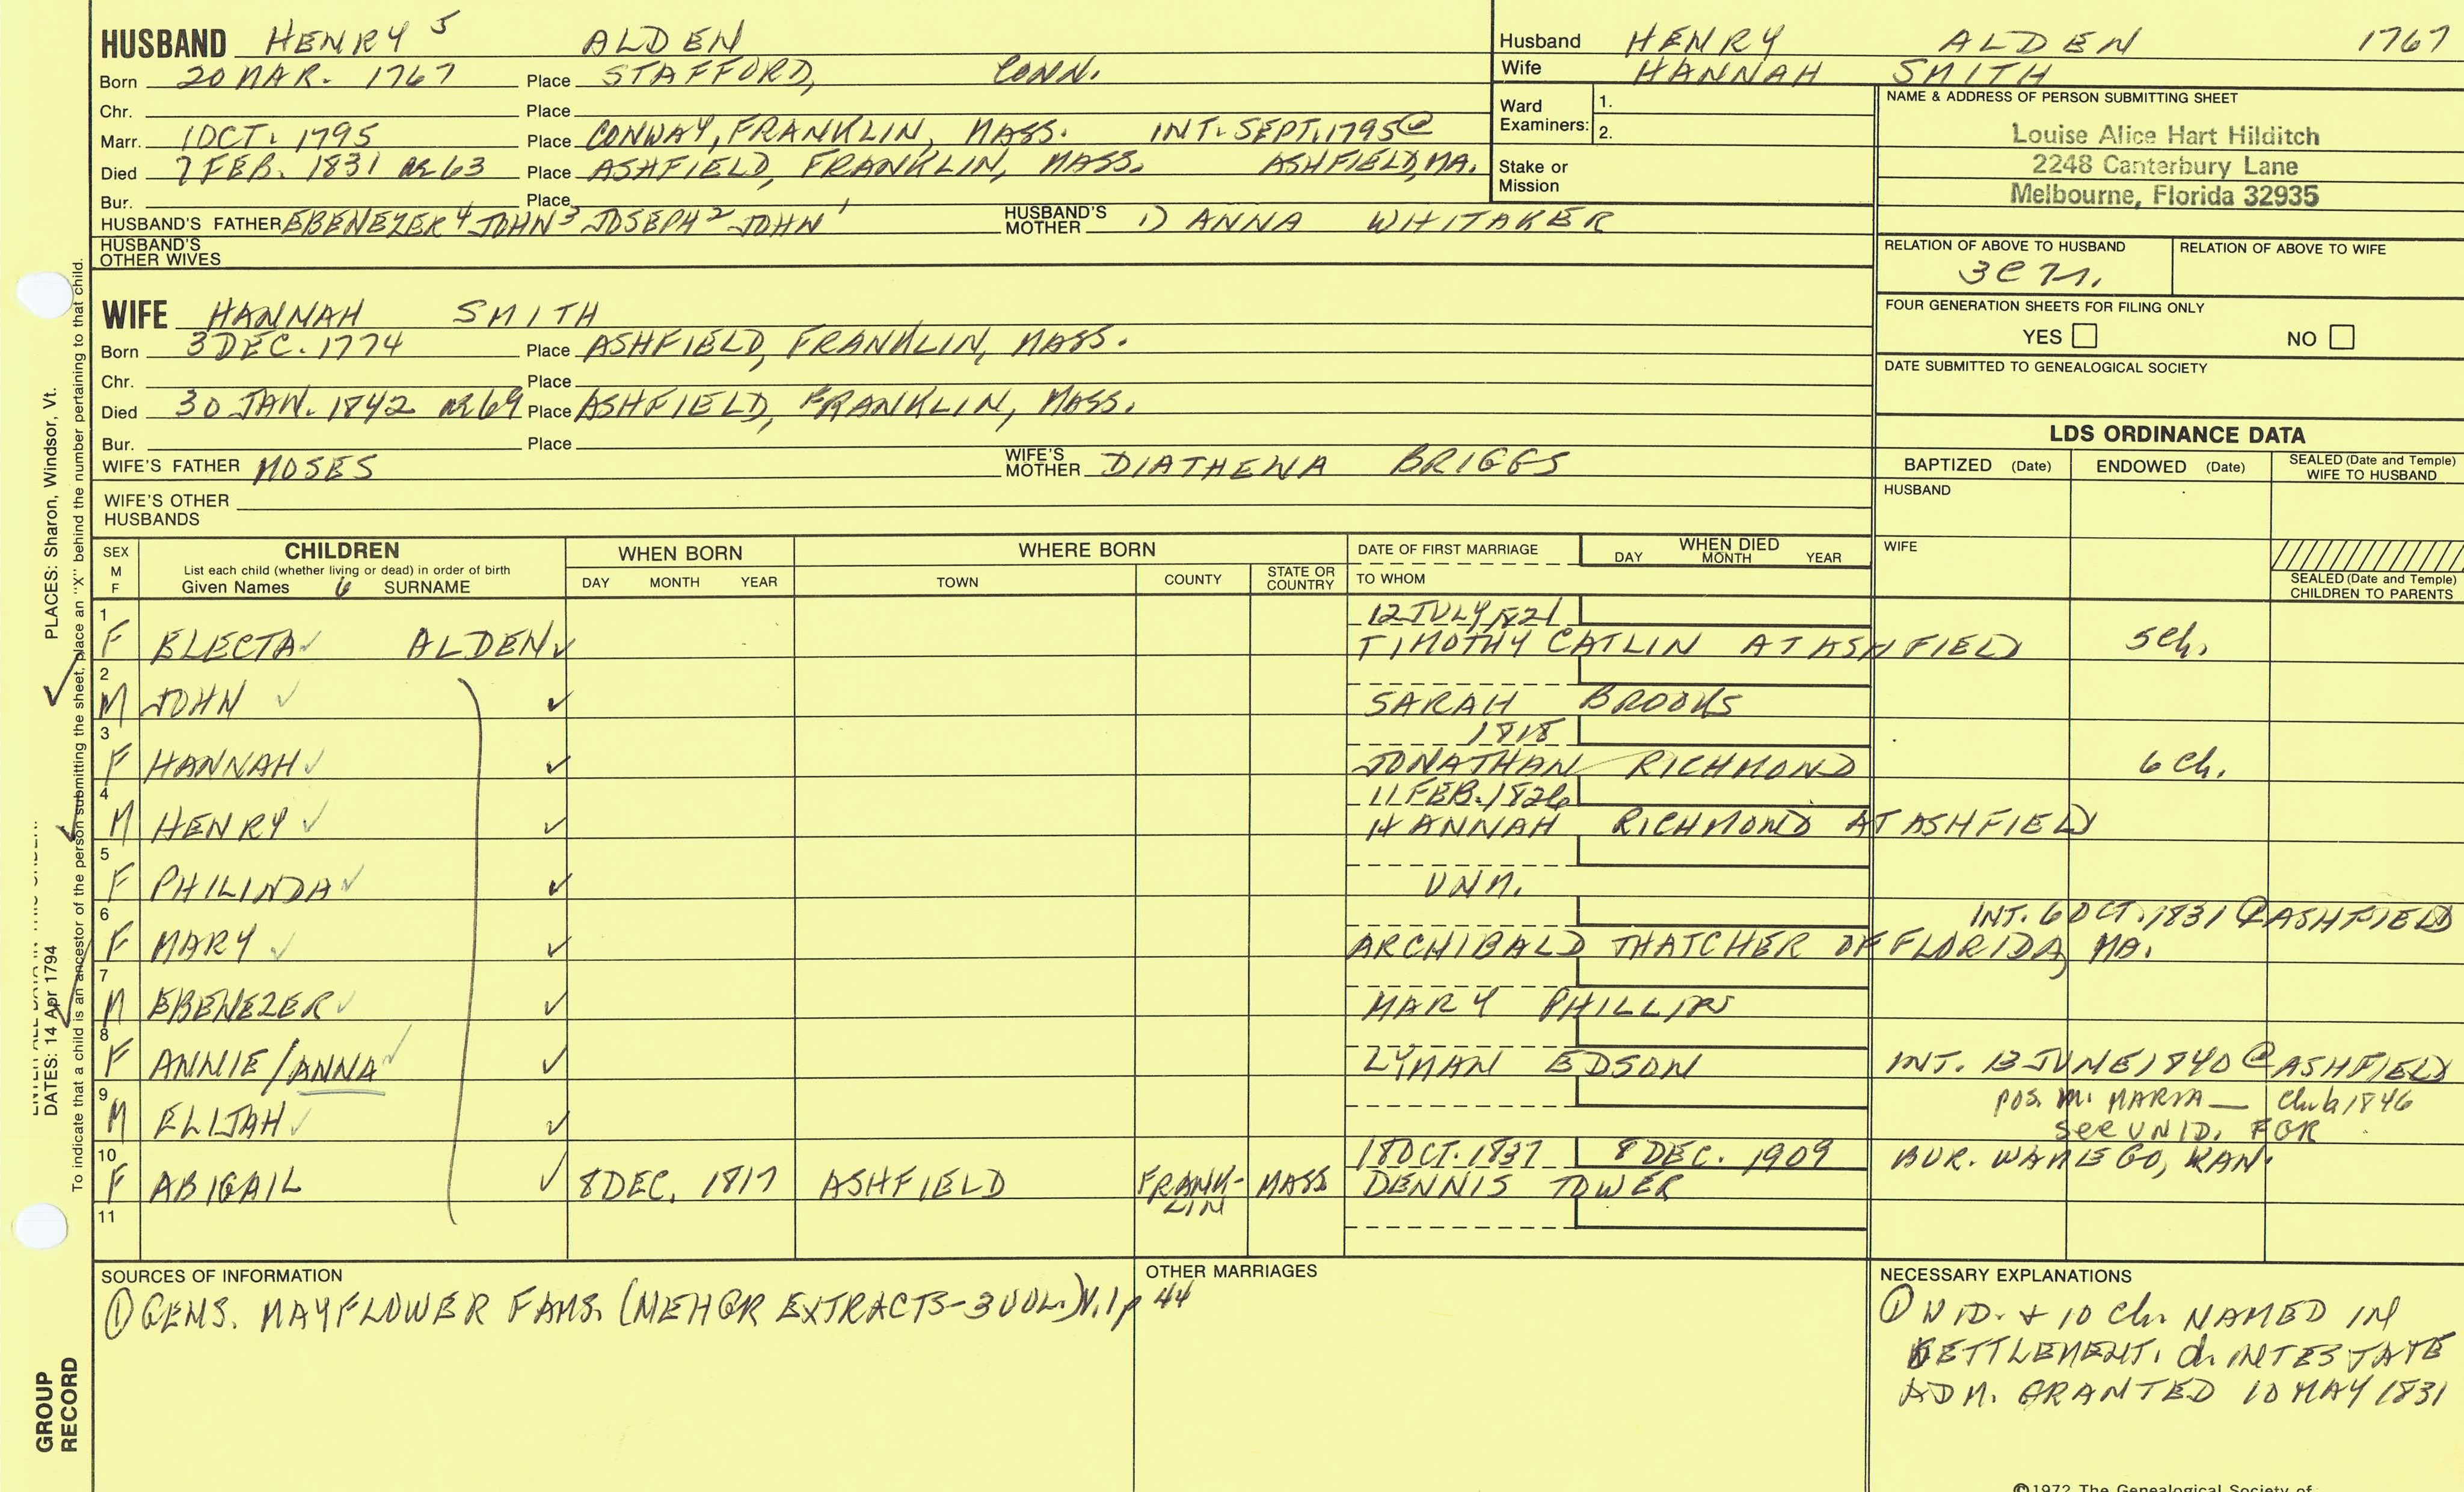 HUSBAND HENRY 5 ALDEN
Born 20 MAR. 1767 Place STAFFORD, CONN.
Chr. Place
Marr. 1 OCT. 1795 Place CONWAY, FRANKLIN, MASS. INT. SEPT. 1795 @
Died 7 FEB. 1831 AE 63 Place ASHFIELD, FRANKLIN, MASS. ASHFIELD, MA.
Bur. Place
HUSBAND'S FATHER EBENEZER 4 JOHN 3 JOSEPH 2 JOHN 1 HUSBAND'S MOTHER 1) ANNA WHITAKER
HUSBAND'S OTHER WIVES
WIFE HANNAH SMITH
Born 3 DEC. 1774 Place ASHFIELD, FRANKLIN, MASS.
Chr. Place
Died 30 JAN. 1842 AE 69 Place ASHFIELD, FRANKLIN, MASS.
Bur. Place
WIFE'S FATHER MOSES WIFE'S MOTHER DIATHEWA BRIGGS
WIFE'S OTHER HUSBANDS
Husband HENRY ALDEN 1767
Wife HANNAH SMITH
Ward Examiners: 1.
2.
Stake or Mission
NAME & ADDRESS OF PERSON SUBMITTING SHEET
Louise Alice Hart Hilditch
2248 Canterbury Lane
Melbourne, Florida 32935
RELATION OF ABOVE TO HUSBAND RELATION OF ABOVE TO WIFE
FOUR GENERATION SHEETS FOR FILING ONLY
YES NO
DATE SUBMITTED TO GENEALOGICAL SOCIETY
LDS ORDINANCE DATA
BAPTIZED (Date) ENDOWED (Date) SEALED (Date and Temple) WIFE TO HUSBAND
HUSBAND
WIFE
SEALED (Date and Temple) CHILDREN TO PARENTS
SEX M F CHILDREN WHEN BORN WHERE BORN DATE OF FIRST MARRIAGE WHEN DIED
List each child (whether living or dead) in order of birth DAY MONTH YEAR
Given Names SURNAME DAY MONTH YEAR TOWN COUNTY STATE OR COUNTRY TO WHOM
1 12 JULY 1821
F ELECTA ALDEN TIMOTHY CATLIN AT ASHFIELD 5 ch.
2
M JOHN SARAH BROOKS
3 1818
F HANNAH JONATHAN RICHMOND 6 ch.
4 11 FEB. 1826
M HENRY HANNAH RICHMOND AT ASHFIELD
5
F PHILINDA UNM.
6 INT. 6 OCT. 1831 @ ASHFIELD
F MARY ARCHIBALD THATCHER OF FLORIDA, MA.
7
M EBENEZER MARY PHILLIPS
8
F ANNIE/ANNA LYMAN EDSON INT. 13 JUNE 1840 @ ASHFIELD
9 pos. m. MARIA — ch. b 1846
M ELIJAH see UNID. FGR
10 18 OCT. 1837 8 DEC. 1909 BUR. WAMEGO, KAN.
F ABIGAIL 8 DEC. 1817 ASHFIELD FRANK-LIN MASS DENNIS TOWER
11
SOURCES OF INFORMATION
① GENS. MAYFLOWER FAMS. (NEHGR EXTRACTS-3 VOL.) V.1 p 44
OTHER MARRIAGES
NECESSARY EXPLANATIONS
① WID. + 10 ch. NAMED IN
SETTLEMENT. d. INTESTATE
ADM. GRANTED 10 MAY 1831
©1972 The Genealogical Society of
PLACES: Sharon, Windsor, Vt.
DATES: 14 Apr 1794
To indicate that a child is an ancestor of the person submitting the sheet, place an "X" behind the number pertaining to that child.
GROUP
RECORD